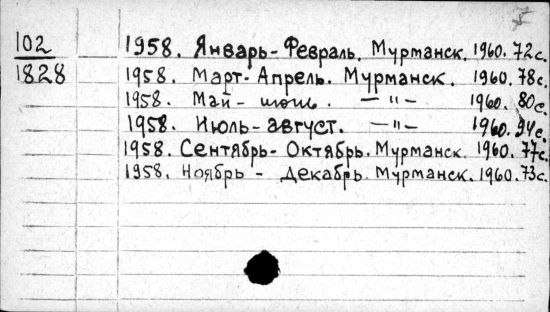 102 1958. Январь-Февраль. Мурманск. 1960. 72с.
1828 1958. Март-Апрель. Мурманск. 1960. 78с.
1958. Май- июнь. —"— 1960. 80с.
1958. Июль-август. —"— 1960. 94с.
1958. Сентябрь- Октябрь. Мурманск. 1960. 77с.
1958. Ноябрь - Декабрь. Мурманск. 1960. 73с.